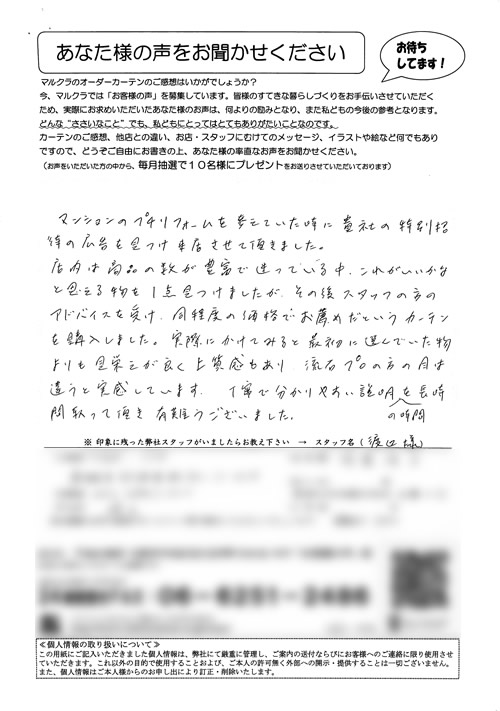 あなた様の声をお聞かせください
お待ち
してます!
マルクラのオーダーカーテンのご感想はいかがでしょうか?
今、マルクラでは「お客様の声」を募集しています。皆様のすてきな暮らしづくりをお手伝いさせていただく
ため、実際にお求めいただいたあなた様のお声は、何よりの励みとなり、また私どもの今後の参考となります。
どんな“ささいなこと”でも、私どもにとってはとてもありがたいことなのです。
カーテンのご感想、他店との違い、お店・スタッフにむけてのメッセージ、イラストや絵など何でもあり
ですので、どうぞご自由にお書きの上、あなた様の率直なお声をお聞かせください。
(お声をいただいた方の中から、毎月抽選で10名様にプレゼントをお送りさせていただいております)
マンションのプチリフォームを考えていた時に貴社の特別招
待の広告を見つけ来店させて頂きました。
店内は商品の数が豊富で迷っている中、これがいいかな
と思える物を1点見つけましたが、その後スタッフの方の
アドバイスを受け、同程度の価格でお薦めだというカーテン
を購入しました。実際にかけてみると最初に選んでいた物
よりも見栄えが良く上質感もあり 流石プロの方の目は
違うと実感しています。丁寧で分かりやすい説明を長時
間取って頂き 有難うございました。 の時間
※ 印象に残った弊社スタッフがいましたらお教え下さい → スタッフ名(渡辺様)
06-6251-2486
≪個人情報の取り扱いについて≫
この用紙にご記入いただきました個人情報は、弊社にて厳重に管理し、ご案内の送付ならびにお客様へのご連絡に限り使用させ
ていただきます。これ以外の目的で使用することおよび、ご本人の許可無く外部への開示・提供することは一切ございません。
また、個人情報はご本人様からのお申し出により訂正・削除いたします。